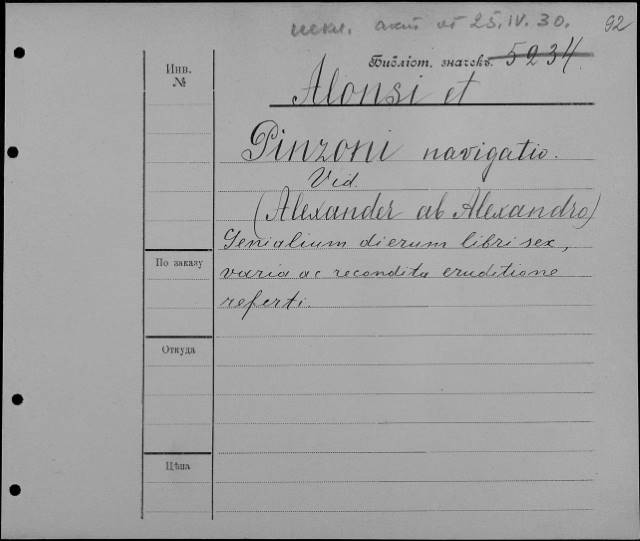 искл. акт от 25.IV.30.
92
Библіот. значекъ. 5234.
Инв.
№
Alonsi et
Pinzoni navigatio.
Vid.
(Alexander ab Alexandro)
Genialium dierum libri sex,
varia ac recondita eruditione
referti.
По заказу
Откуда
Цѣна